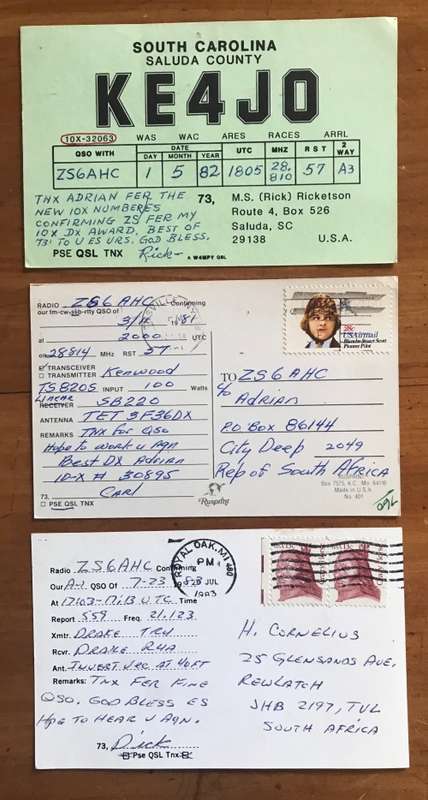 SOUTH CAROLINA
SALUDA COUNTY
KE4JO
10X-32063 WAS WAC ARES RACES ARRL
QSO WITH DATE UTC MHZ R S T 2 WAY
DAY MONTH YEAR
ZS6AHC 1 5 82 1805 28.810 57 A3
THX ADRIAN FER THE
NEW 10X NUMBERES
CONFIRMING ZS FER MY
10X DX AWARD. BEST OF
73! TO U ES URS. GOD BLESS.
PSE QSL TNX Rick-
73, M.S. (Rick) Ricketson
Route 4, Box 526
Saluda, SC
29138 U.S.A.
A W4MPY QSL
RADIO ZS6AHC Confirming
our fm-cw-ssb-rtty QSO of
19 81
at 2000 UTC
on 28814 MHz RST 57
TRANSCEIVER Kenwood
TRANSMITTER
TS820S INPUT 100 Watts
Linear
RECEIVER SB220
ANTENNA TET 3F36DX
REMARKS Tnx for QSO
Hope to work u Agn
Best DX Adrian
10-X # 30895
73, Carl
PSE QSL TNX
28c
USAirmail
Blanche Stuart Scott
Pioneer Pilot
TO ZS6AHC
c/o Adrian
P.O. Box 86144
City Deep 2049
Rep of South Africa
Box 7575, K.C. Mo. 64116
Made in U.S.A.
No. 401
Raspring
Radio ZS6AHC Confirming
Our A-1 QSO Of 7-23 1983
At 1703-1718 UTC Time
Report 559 Freq. 21.123
Xmtr. DRAKE TR4
Rcvr. DRAKE R4A
Ant. INVERT VEE AT 40FT
Remarks: TNX FER FINE
QSO. GOD BLESS ES
HPE TO HEAR U AGN.
73, Dick
Pse QSL Tnx
ROYAL OAK, MI 480
PM
23 JUL
1983
H. CORNELIUS
25 GLENSANDS AVE,
REWLATCH
JHB 2197, TVL
SOUTH AFRICA